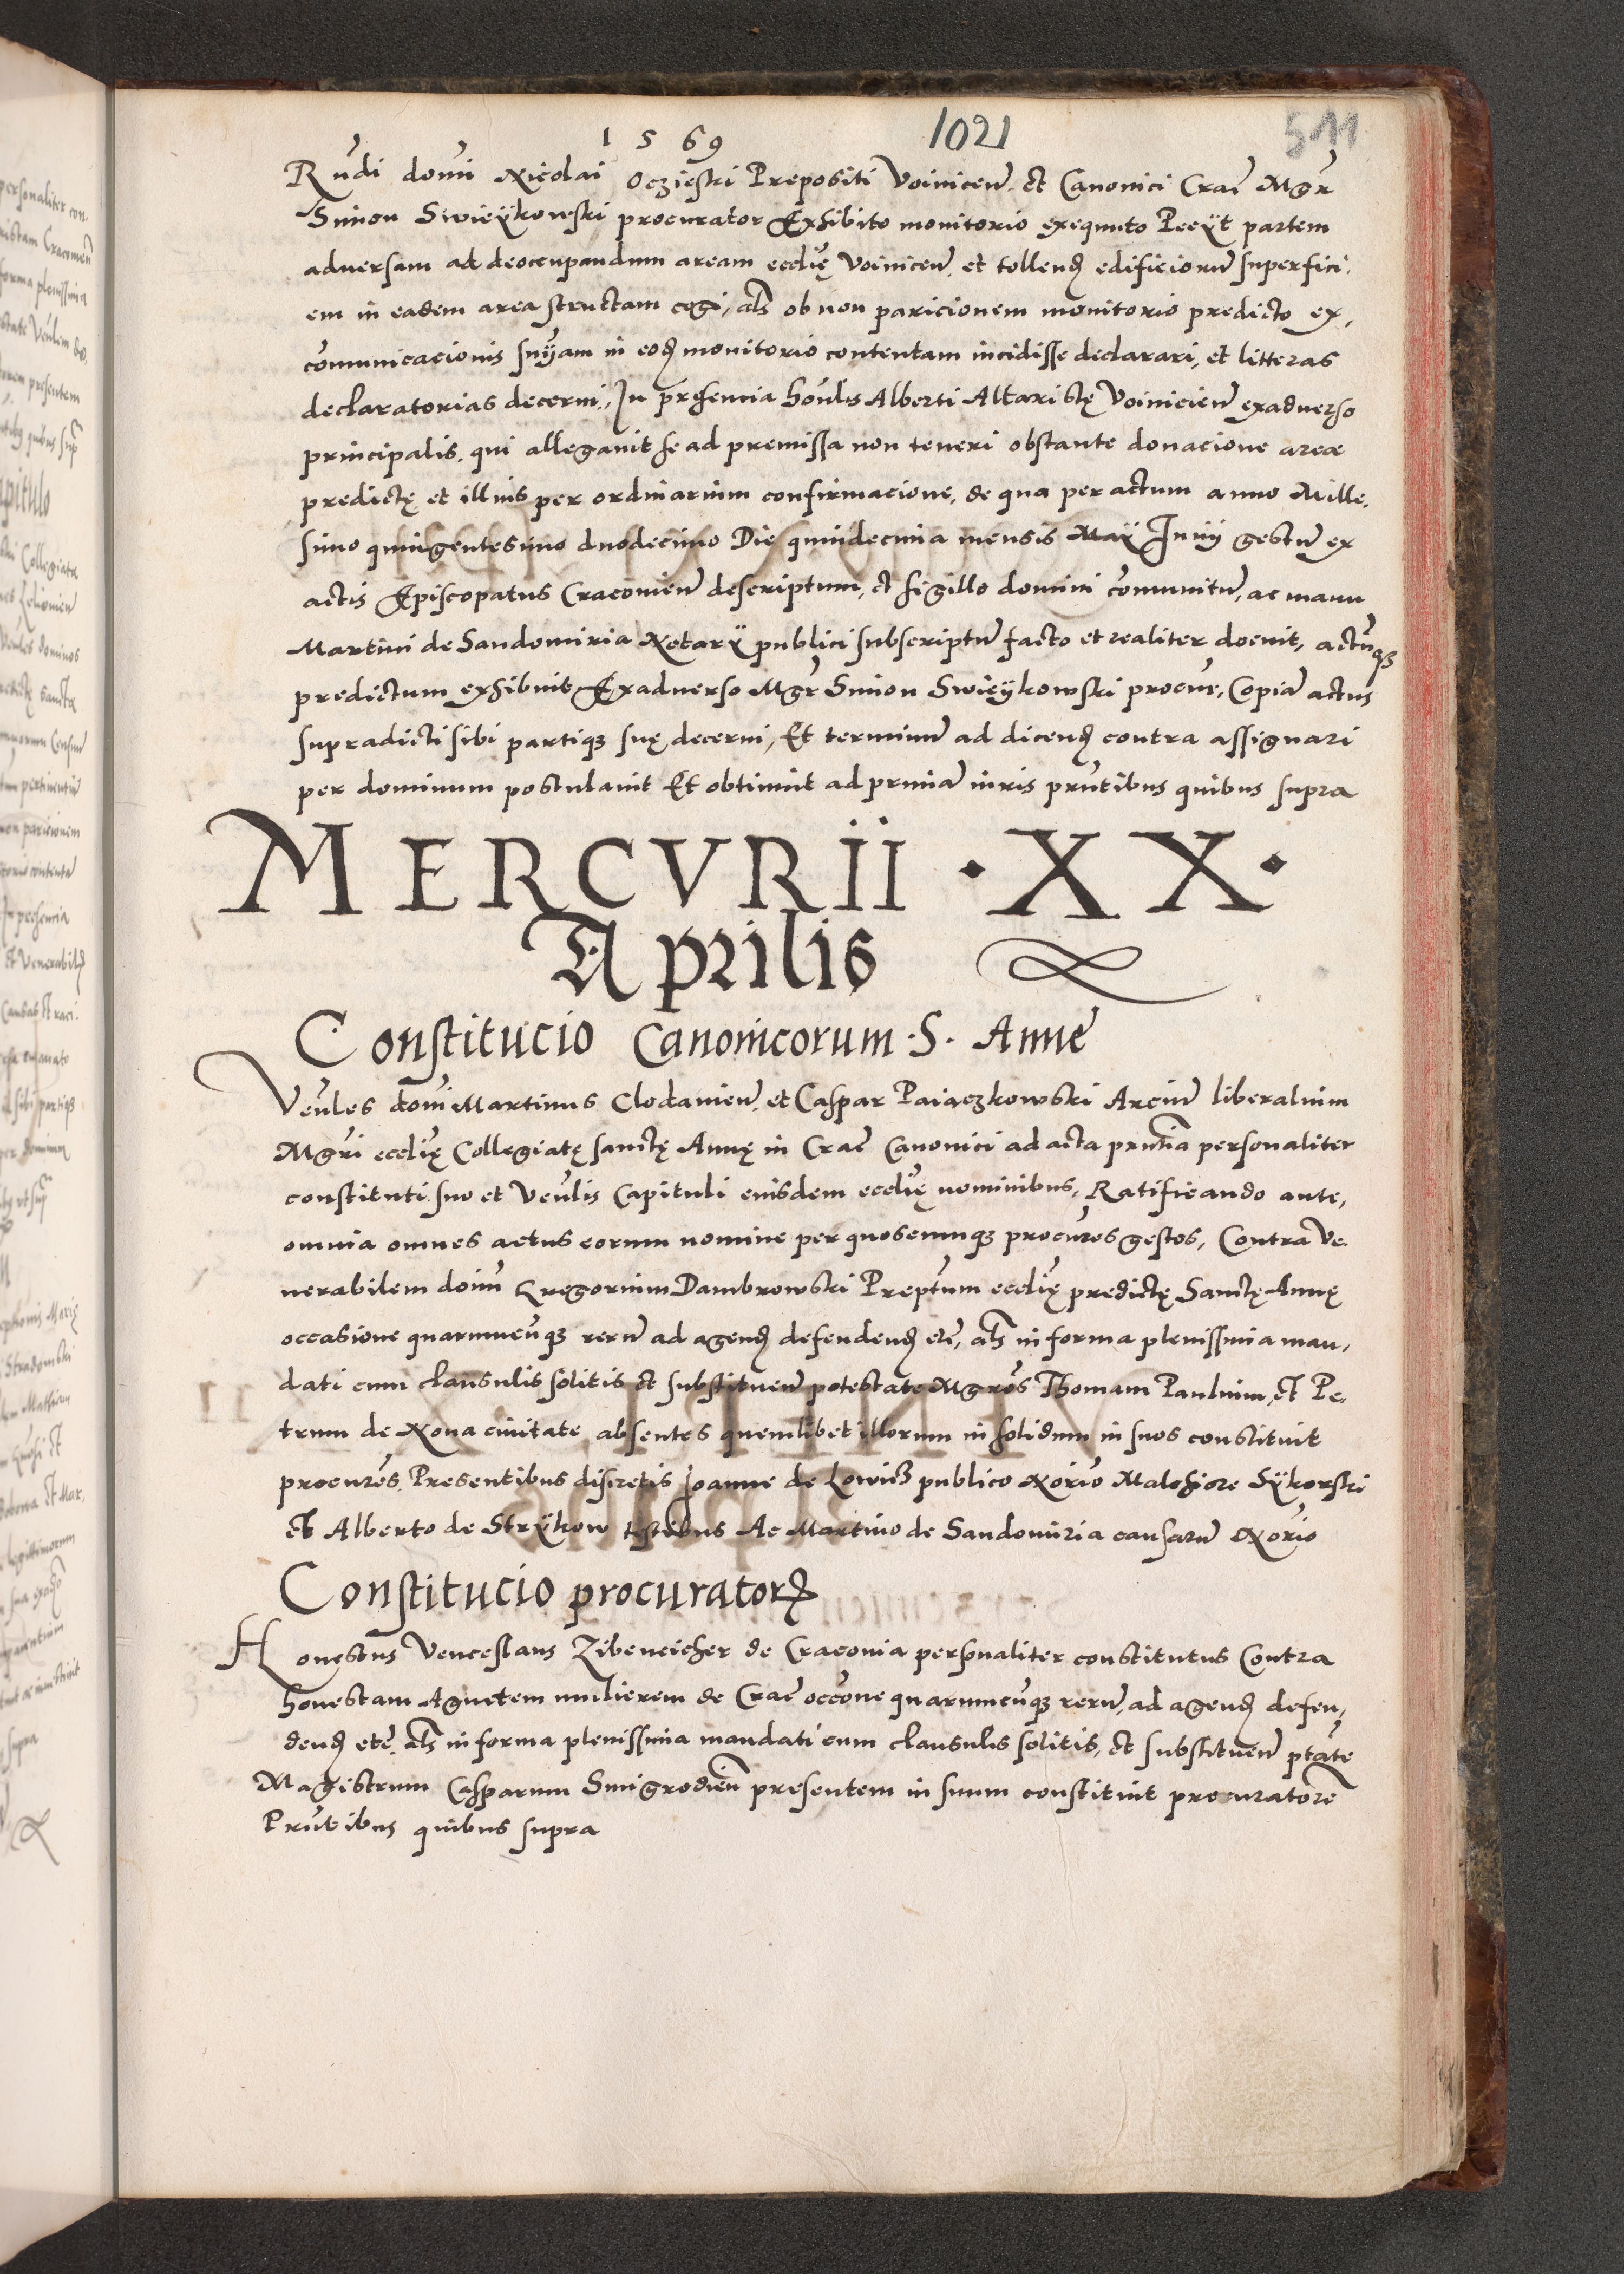 1569
1021
511
Rndi domi Nicolai Oczieski Prepositi Voinicen. et Canonici Crac Mgr
Simon Swieÿkowski procurator Exhibito monitorio exequuto Peeÿt partem
adversam ad deoccupandum aream ecclię Voinicen. et tollend edificiorum superfici-
em in eadem area structam cogi, als ob non paricionem monitorio predicto ex,
comunicacionis snÿam in eod monitorio contentam incidisse declarari, et litteras
declaratorias decerni., In presencia honlis Alberti Altaristę Voinicien exadverso
principalis. qui allegavit se ad premissa non teneri obstante donacione areæ
predictę et illius per ordinarium confirmacione, de qua per actum anno Mille,
simo quingentesimo duodecimo Die quindecima mensis Maÿ gestum ex
actis Episcopatus Cracovien descriptum, et sigillo domini comunitum, ac manu
Martini de Sandomiria Notarÿ publici subscriptum facto et realiter docuit, actumq
predictum exhibuit Exadverso Mgr Simon Swieÿkowski procur, Copiam actus
supradicti sibi partiq suę decerni, Et terminum ad dicend contra assignari
per dominum postulavit Et obtinuit ad primam iuris prntibus quibus supra
MERCVRII · XX ·
Aprilis
Constitucio Canonicorum · S · Anne
Venles domi Martinus Clodavien. et Caspar Paiaczkowski Arcium liberalium
Mgri ecclię Collegiatę sanctę Annę in Crac Canonici ad acta prntia personaliter
constituti. suo et Venlis Capituli eiusdem ecclię nominibus, Ratificando ante,
omnia omnes actus eorum nomine per quoscunq procures gestos, Contra Ve-
nerabilem dom Gregorium Dambrowski Preptum ecclię predictę Sanctę Annę
occasione quarumcunq rerum ad agend defendend etc, als in forma plenissima man,
dati cum clausulis solitis et substituen potestate Mgros Thomam Paulinum, et Pe-
trum de Nova civitate absentes quemlibet illorum in solidum in suos constituit
procures. Presentibus discretis Joanne de Lowicz publico Norio Malchiore Sÿkorski
et Alberto de Strÿkow testibus Ac Martino de Sandomiria causarum Norio
Constitucio procurator
Honestus Venceslaus Zibeneicher de Cracovia personaliter constitutus Contra
honestam Agnetem mulierem de Crac occone quarumcunq rerum, ad agend defen,
dend etc. als in forma plenissima mandati cum clausulis solitis, et substituen ptate
Magistrum Casparum Smigrodien presentem in suum constituit procuratorem
Prntibus quibus supra